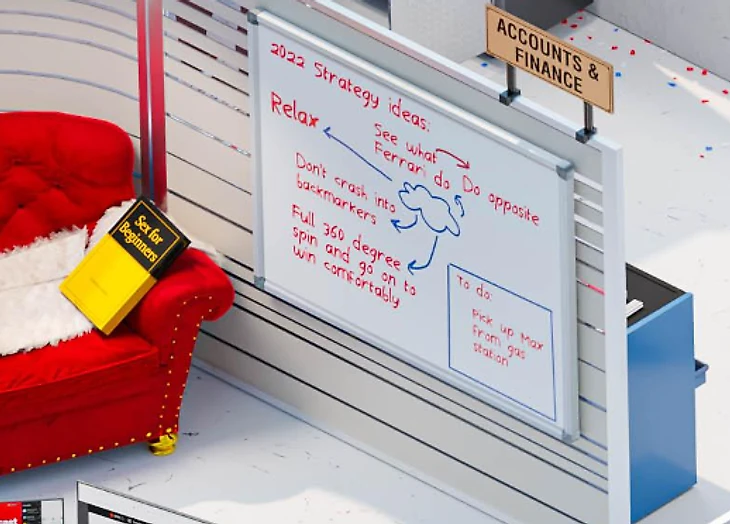 ACCOUNTS &
FINANCE
2022 Strategy ideas:
Relax
See what
Ferrari do
Do opposite
Don't crash into
backmarkers
Full 360 degree
spin and go on to
win comfortably
To do:
Pick up Max
from gas
station
Sex for
Beginners